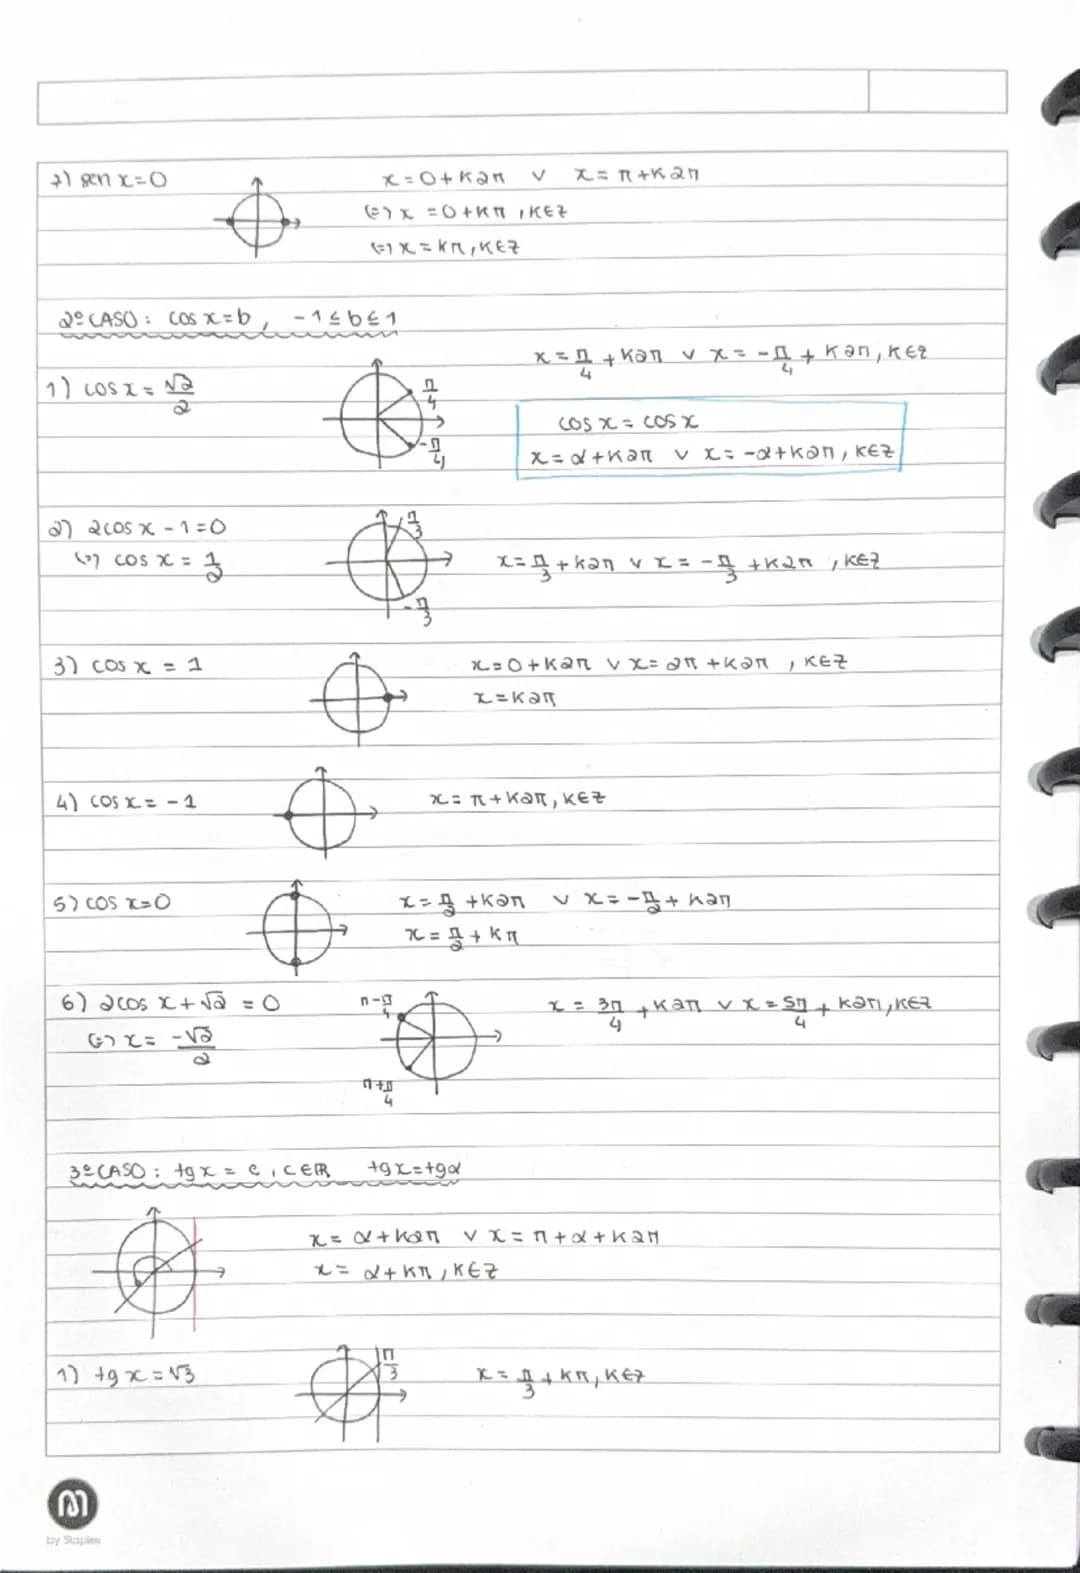 7) sen x=0
x=0+k2π ∨ x=π+k2π
(=) x=0+kπ, k∈Z
(=) x=kπ, k∈Z
2º CASO: cos x=b, -1≤b≤1
x=π/4+k2π ∨ x=-π/4+k2π, k∈Z
1) cos x=√2/2
π/4
-π/4
cos x = cos x
x=α+k2π ∨ x=-α+k2π, k∈Z
2) 2cos x-1=0
π/3
(=) cos x=1/2
x=π/3+k2π ∨ x=-π/3+k2π, k∈Z
-π/3
3) cos x=1
x=0+k2π ∨ x=2π+k2π, k∈Z
x=k2π
4) cos x=-1
x=π+k2π, k∈Z
5) cos x=0
x=π/2+k2π ∨ x=-π/2+k2π
x=π/2+kπ
6) 2cos x+√2=0
π-π/4
x=3π/4+k2π ∨ x=5π/4+k2π, k∈Z
(=) x=-√2/2
π+π/4
3º CASO: tg x=c, c∈IR tg x=tg α
x=α+k2π ∨ x=π+α+k2π
x=α+kπ, k∈Z
1) tg x=√3
π/3
x=π/3+kπ, k∈Z
by Staples